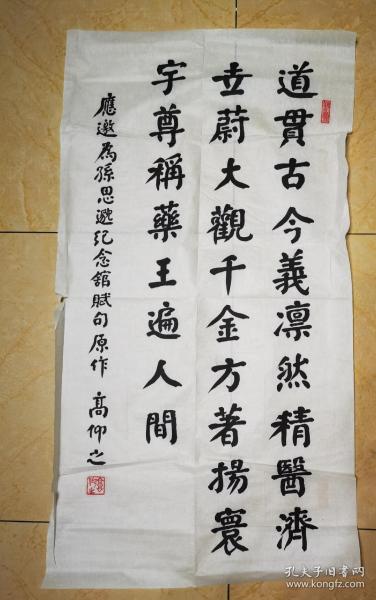 道貫古今義凛然精醫濟
世蔚大觀千金方著揚寰
宇尊稱藥王遍人間
應邀為孫思邈纪念舘賦句原作 高仰之
孔夫子旧书网
www.kongfz.com